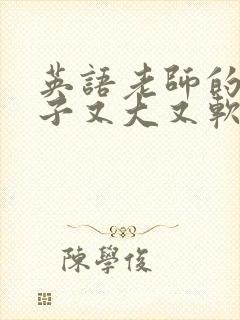 英語老師的
子又大又軟
陳學俊